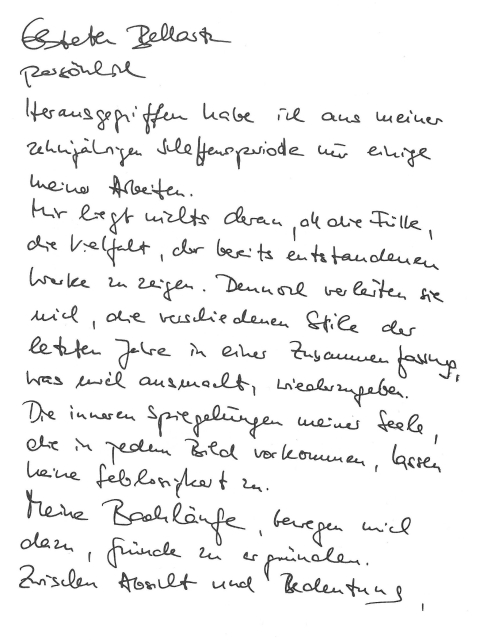 Bellastr
persönlich
Herausgegriffen habe ich aus meiner
zehnjährigen Schaffensperiode nur einige
meiner Arbeiten.
Mir liegt nichts daran, all die Fülle,
die Vielfalt, der bereits entstandenen
Werke zu zeigen. Dennoch verleiten sie
mich, die verschiedenen Stile der
letzten Jahre in einer Zusammenfassung,
was mich ausmacht, wiederzugeben.
Die inneren Spiegelungen meiner Seele,
die in jedem Bild vorkommen, lassen
keine Leblosigkeit zu.
Meine Bachläufe, bewegen mich
dazu, Gründe zu ergründen.
Zwischen Absicht und Bedeutung,